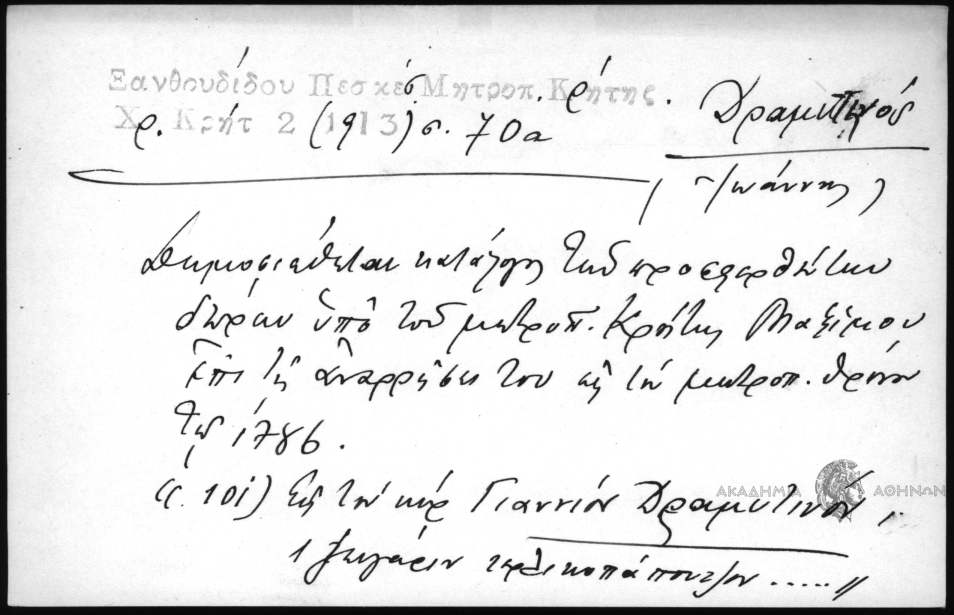 Ξανθουδίδου Πεσκέσ. Μητροπ. Κρήτης.
Χρ. Κρήτ 2 (1913) σ. 70α
Δραμυτινός
(Ἰωάννης)
Δημοσιεύεται κατάλογος τῶν προσφερθέντων
δώρων ὑπό τοῦ μητροπ. Κρήτης Μαξίμου
ἐπί τῇ ἀναρρήσει του εἰς τόν μητροπ. θρόνον
τῷ 1786.
(σ. 101) Εἰς τόν κύρ Γιαννιόν Δραμυτινόν,
ΑΚΑΔΗΜΙΑ ΑΘΗΝΩΝ
1 ζευγάριν τερλικοπάπουτζον ..... //